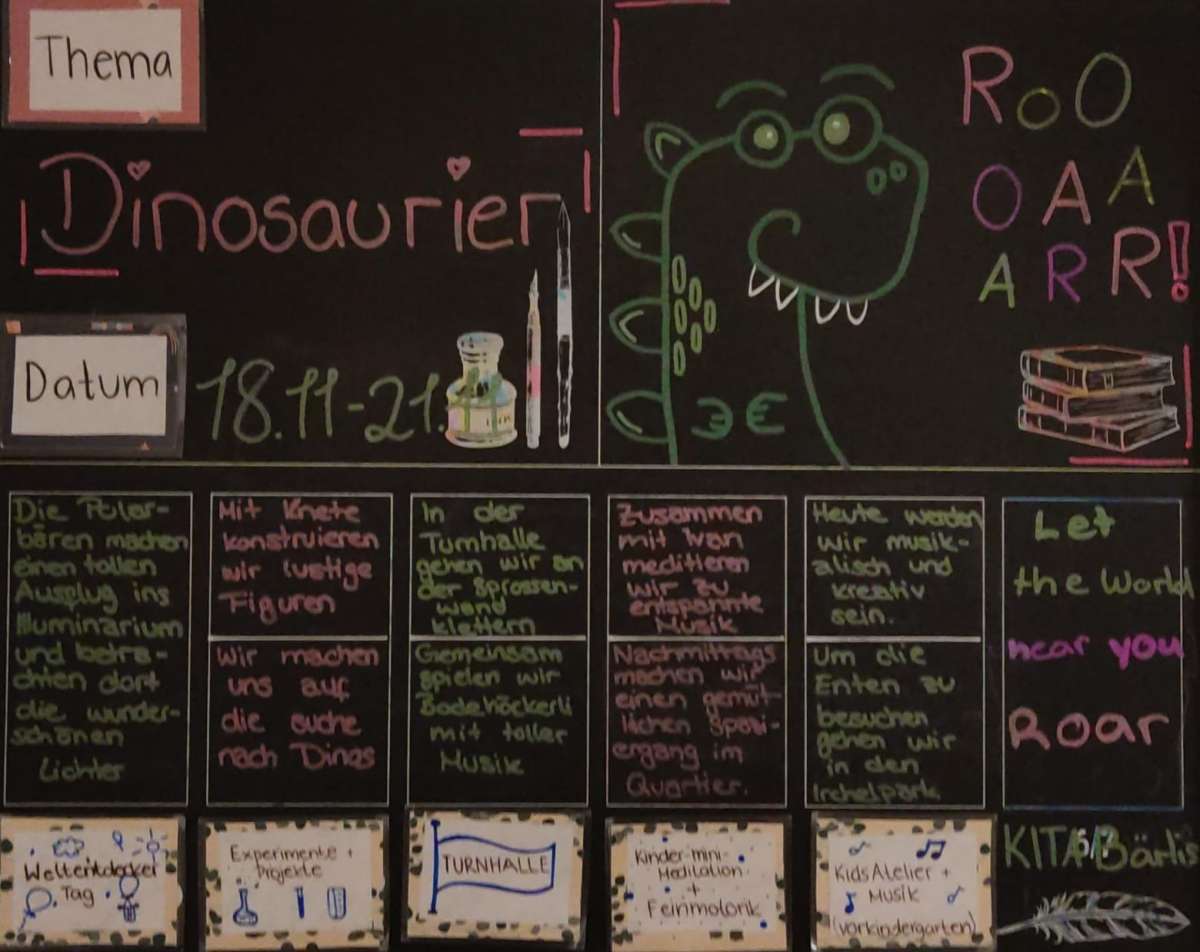 Thema
Dinosaurier
Datum
18.11-21.
RoO
OAA
ARR!
Die Polar-
bären machen
einen tollen
Ausplug ins
Illuminarium
und betra-
chten dort
die wunder-
schönen
Lichter
Mit Knete
konstruieren
wir lustige
Figuren
Wir machen
uns auf
die suche
nach Dinos
In der
Turnhalle
gehen wir an
der Sprossen-
wand
klettern
Gemeinsam
spielen wir
Bodehöckerli
mit toller
Musik
Zusammen
mit Ivan
meditieren
wir zu
entspannte
Musik
Nachmittags
machen wir
einen gemüt-
lichen Spazi-
ergang im
Quartier.
Heute werden
wir musik-
alisch und
kreativ
sein.
Um die
Enten zu
besuchen
gehen wir
in den
Irchelpark.
Let
the World
hear you
Roar
Weltentdecker
Tag
Experimente +
Projekte
TURNHALLE
Kinder-mini-
Meditation
+
Feinmotorik
KidsAtelier +
Musik
(vorkindergarten)
KITA Bärlis